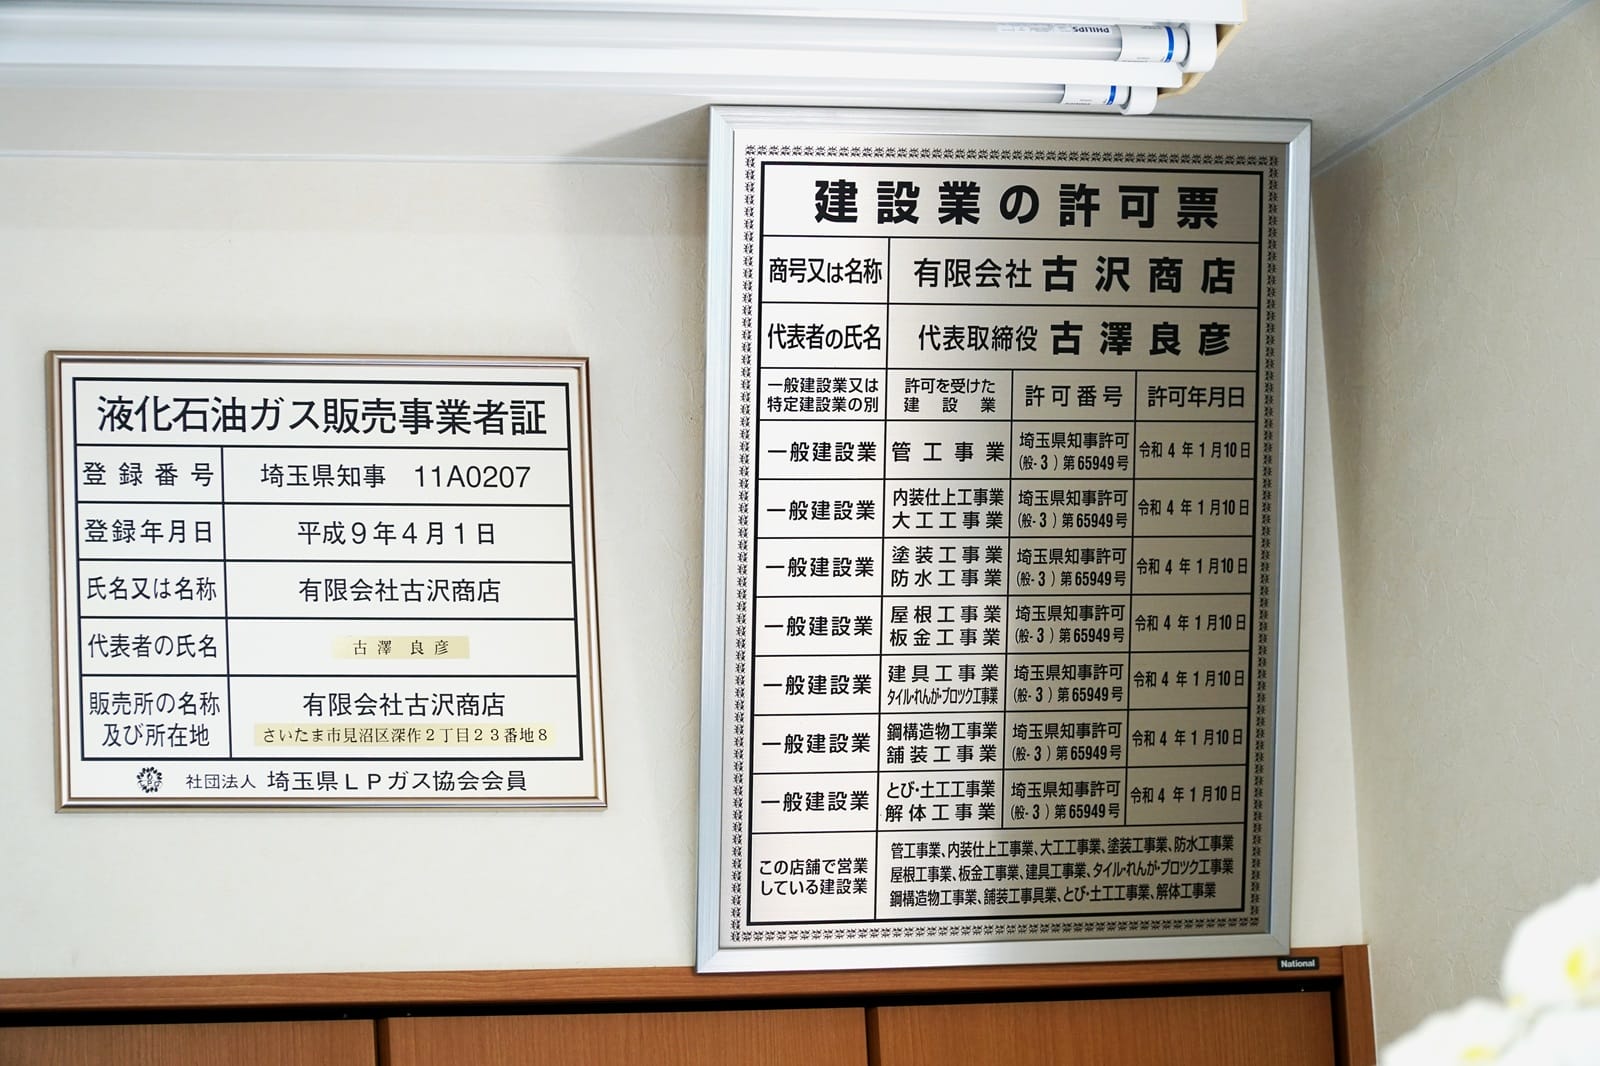 PHILIPS
液化石油ガス販売事業者証
登録番号 埼玉県知事 11A0207
登録年月日 平成9年4月1日
氏名又は名称 有限会社古沢商店
代表者の氏名 古澤 良彦
販売所の名称
及び所在地
有限会社古沢商店
さいたま市見沼区深作2丁目23番地8
社団法人 埼玉県LPガス協会会員
建設業の許可票
商号又は名称 有限会社 古沢商店
代表者の氏名 代表取締役 古澤良彦
一般建設業又は
特定建設業の別
許可を受けた
建設業
許可番号
許可年月日
一般建設業
管工事業
埼玉県知事許可
(般-3)第65949号
令和4年1月10日
一般建設業
内装仕上工事業
大工工事業
埼玉県知事許可
(般-3)第65949号
令和4年1月10日
一般建設業
塗装工事業
防水工事業
埼玉県知事許可
(般-3)第65949号
令和4年1月10日
一般建設業
屋根工事業
板金工事業
埼玉県知事許可
(般-3)第65949号
令和4年1月10日
一般建設業
建具工事業
タイル・れんが・ブロツク工事業
埼玉県知事許可
(般-3)第65949号
令和4年1月10日
一般建設業
鋼構造物工事業
舗装工事業
埼玉県知事許可
(般-3)第65949号
令和4年1月10日
一般建設業
とび・土工工事業
解体工事業
埼玉県知事許可
(般-3)第65949号
令和4年1月10日
この店舗で営業
している建設業
管工事業、内装仕上工事業、大工工事業、塗装工事業、防水工事業
屋根工事業、板金工事業、建具工事業、タイル・れんが・ブロツク工事業
鋼構造物工事業、舗装工事具業、とび・土工工事業、解体工事業
National